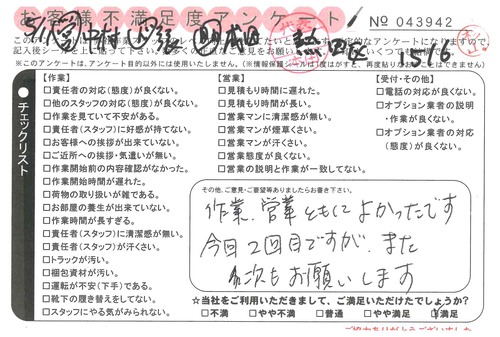 お客様不満足度アンケート
No 043942
このアン
※このアンケートは、アンケート目的以外には使用いたしません。(※情報保護シールは1度はがすと、再度貼りなおしことはできません)
チェックリスト
【作業】
□責任者の対応(態度)が良くない。
□他のスタッフの対応(態度)が良くない。
□作業を見ていて不安がある。
□責任者(スタッフ)に好感が持てない。
□お客様への挨拶が出来ていない。
□ご近所への挨拶・気遣いが無い。
□作業開始前の内容確認がなかった。
□作業開始時間が遅れた。
□荷物の取り扱いが雑である。
□お部屋の養生が出来ていない。
□作業時間が長すぎる。
□責任者(スタッフ)に清潔感が無い。
□責任者(スタッフ)が汗くさい。
□トラックが汚い。
□梱包資材が汚い。
□運転が安全(下手)である。
□靴下の履き替えをしてない。
□スタッフにやる気がみられない。
【営業】
□見積もり時間に遅れた。
□見積もり時間が長い。
□営業マンに清潔感が無い。
□営業マンが煙草くさい。
□営業マンが汗くさい。
□営業態度が良くない。
□営業の説明と作業が一致してない。
【受付・その他】
□電話の対応が良くない。
□オプション業者の説明・作業が良くない。
□オプション業者の対応(態度)が良くない。
その他、ご意見・ご要望等ありましたらお書き下さい。
作業、営業ともによかったです
今日2回目ですが、また
次もお願いします
☆当社をご利用いただきまして、ご満足いただけたでしょうか?
□不満 □やや不満 □普通 □やや満足 □満足
ご協力ありがとうございました